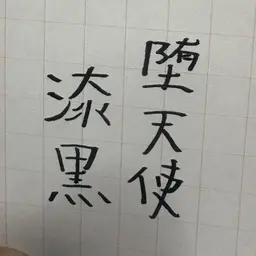 堕天使
漆黒